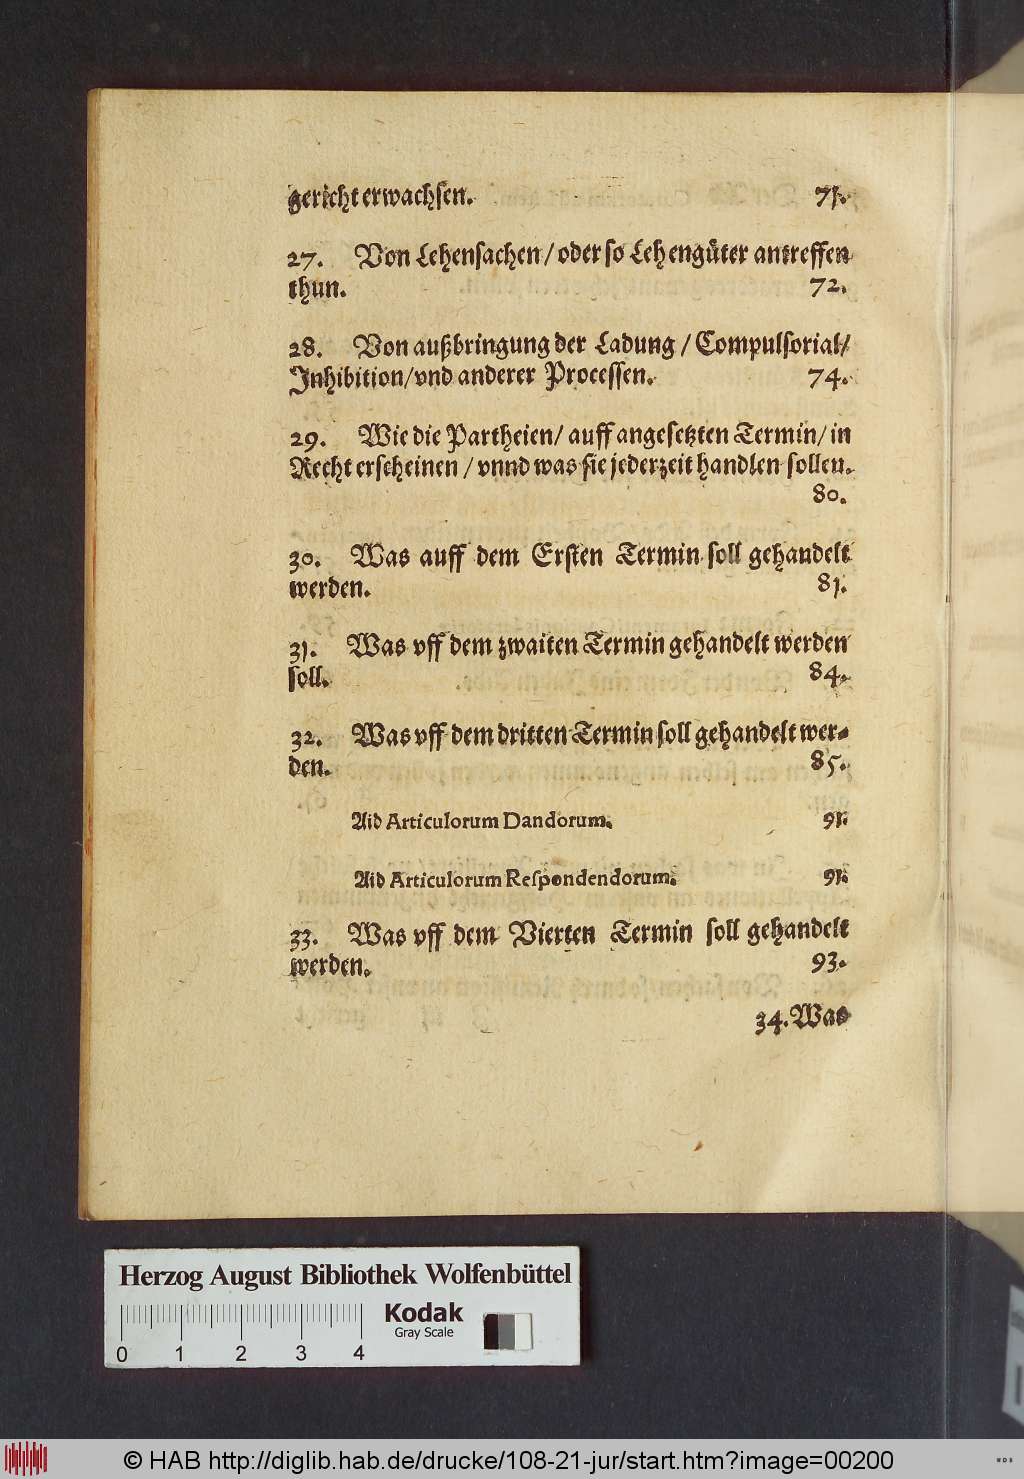 gericht erwachsen. 71.
27. Von Lehensachen / oder so Lehengüter antreffen
thun. 72.
28. Von außbringung der Ladung / Compulsorial/
Inhibition/vnd anderer Processen. 74.
29. Wie die Partheien/ auff angesetzten Termin/ in
Recht erscheinen / vnnd was sie jederzeit handlen sollen.
80.
30. Was auff dem Ersten Termin soll gehandelt
werden. 81.
31. Was vff dem zwaiten Termin gehandelt werden
soll. 84.
32. Was vff dem dritten Termin soll gehandelt wer-
den. 85.
Aid Articulorum Dandorum. 91.
Aid Articulorum Respondendorum. 91.
33. Was vff dem Vierten Termin soll gehandelt
werden. 93.
34. Was
Herzog August Bibliothek Wolfenbüttel
Kodak
Gray Scale
0 1 2 3 4
© HAB http://diglib.hab.de/drucke/108-21-jur/start.htm?image=00200